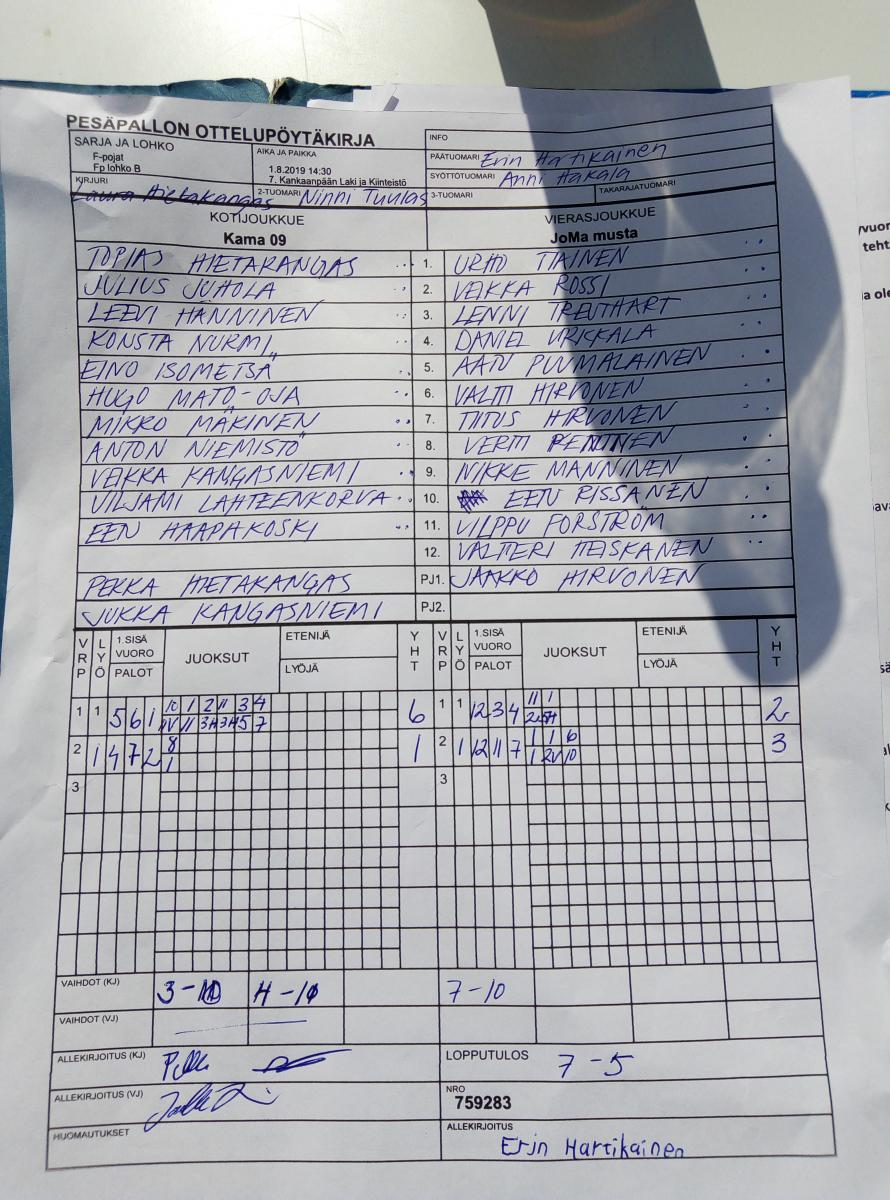 PESÄPALLON OTTELUPÖYTÄKIRJA
SARJA JA LOHKO
F-pojat
Fp lohko B
AIKA JA PAIKKA
1.8.2019 14:30
7. Kankaanpään Laki ja Kiinteistö
INFO
PÄÄTUOMARI Erin Hartikainen
SYÖTTÖTUOMARI Anni Hakala
KIRJURI Laura Hietakangas
2-TUOMARI Ninni Tuulas
3-TUOMARI
TAKARAJATUOMARI
KOTIJOUKKUE VIERASJOUKKUE
Kama 09 JoMa musta
TOPIAS HIETAKANGAS 1. URHO TIAINEN
JULIUS JUHOLA 2. VEIKKA ROSSI
LEEVI HÄNNINEN 3. LENNI TREUTHART
KONSTA NURMI 4. DANIEL URKKALA
EINO ISOMETSÄ 5. AATU PUUMALAINEN
HUGO MATO-OJA 6. VALTTI HIRVONEN
MIKKO MÄKINEN 7. TIITUS HIRVONEN
ANTON NIEMISTÖ 8. VERTTI PENTTINEN
VEIKKA KANGASNIEMI 9. NIKKE MANNINEN
VILJAMI LAHTEENKORVA 10. EETU RISSANEN
EEN HAAPAKOSKI 11. VILPPU FORSTRÖM
12. VALTTERI HEISKANEN
PEKKA HIETAKANGAS PJ1. JAAKKO HIRVONEN
JUKKA KANGASNIEMI PJ2.
VRP LYÖ 1.SISÄ VUORO PALOT JUOKSUT ETENIJÄ LYÖJÄ YHT VRP LYÖ 1.SISÄ VUORO PALOT JUOKSUT ETENIJÄ LYÖJÄ YHT
1 1 5 6 1 10 1 2 11 3 4 6 1 1 12 3 4 11 1 2
2 1 4 7 2 8 1 1 2 1 12 11 7 1 1 6 3
3 3
VAIHDOT (KJ) 7-10
VAIHDOT (VJ)
ALLEKIRJOITUS (KJ)
LOPPUTULOS 7-5
ALLEKIRJOITUS (VJ)
NRO
759283
HUOMAUTUKSET
ALLEKIRJOITUS
Erin Hartikainen